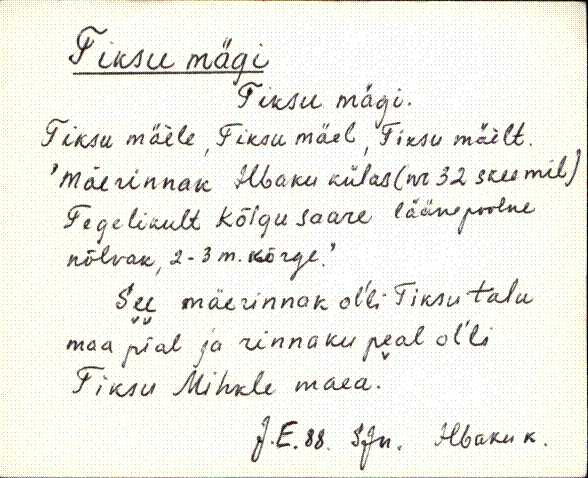 Tiksu mägi
Tiksu mägi.
Tiksu mäele, Tiksu mäel, Tiksu mäelt.
'Mäerinnak Ubaku külas (nr 32 skeemil)
Tegelikult Kõigu saare läänepoolne
nõlvak, 2-3 m. kõrge.'
See mäerinnak ol'li Tiksu talu
maa pial ja rinnaku peal ol'li
Tiksu Mihkle maea.
J.E. 88. SJn. Ubaku k.